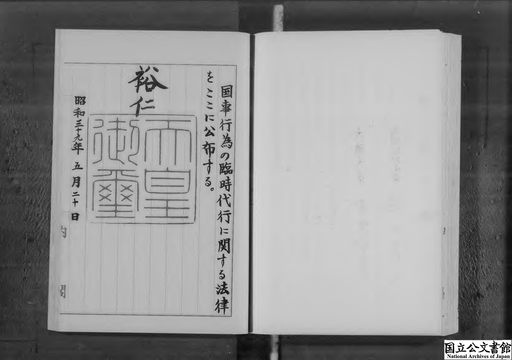 国事行為の臨時代行に関する法律
をここに公布する。
裕仁
天皇
御璽
昭和三十九年五月二十日
国立公文書館
National Archives of Japan